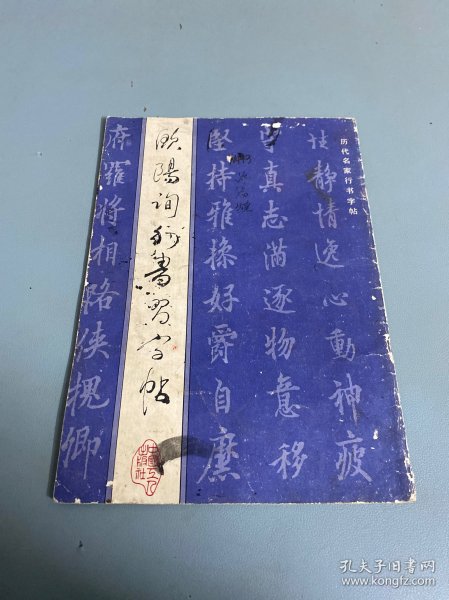 历代名家行书字帖
性静情逸心動神疲
守真志滿逐物意移
堅持雅操好爵自縻
欧陽询行書習字帖
府羅将相路侠槐卿
孔夫子旧书网
www.kongfz.com